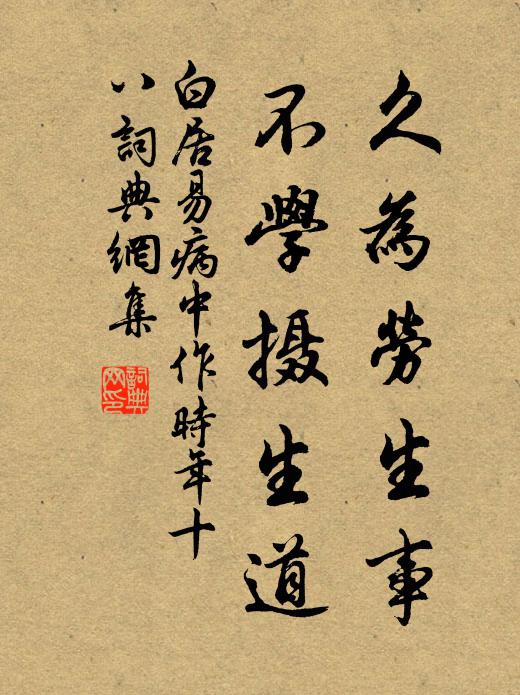 久為勞生事
不學摄生道
白居易病中作時年十
八詞典網集
詞典
网印